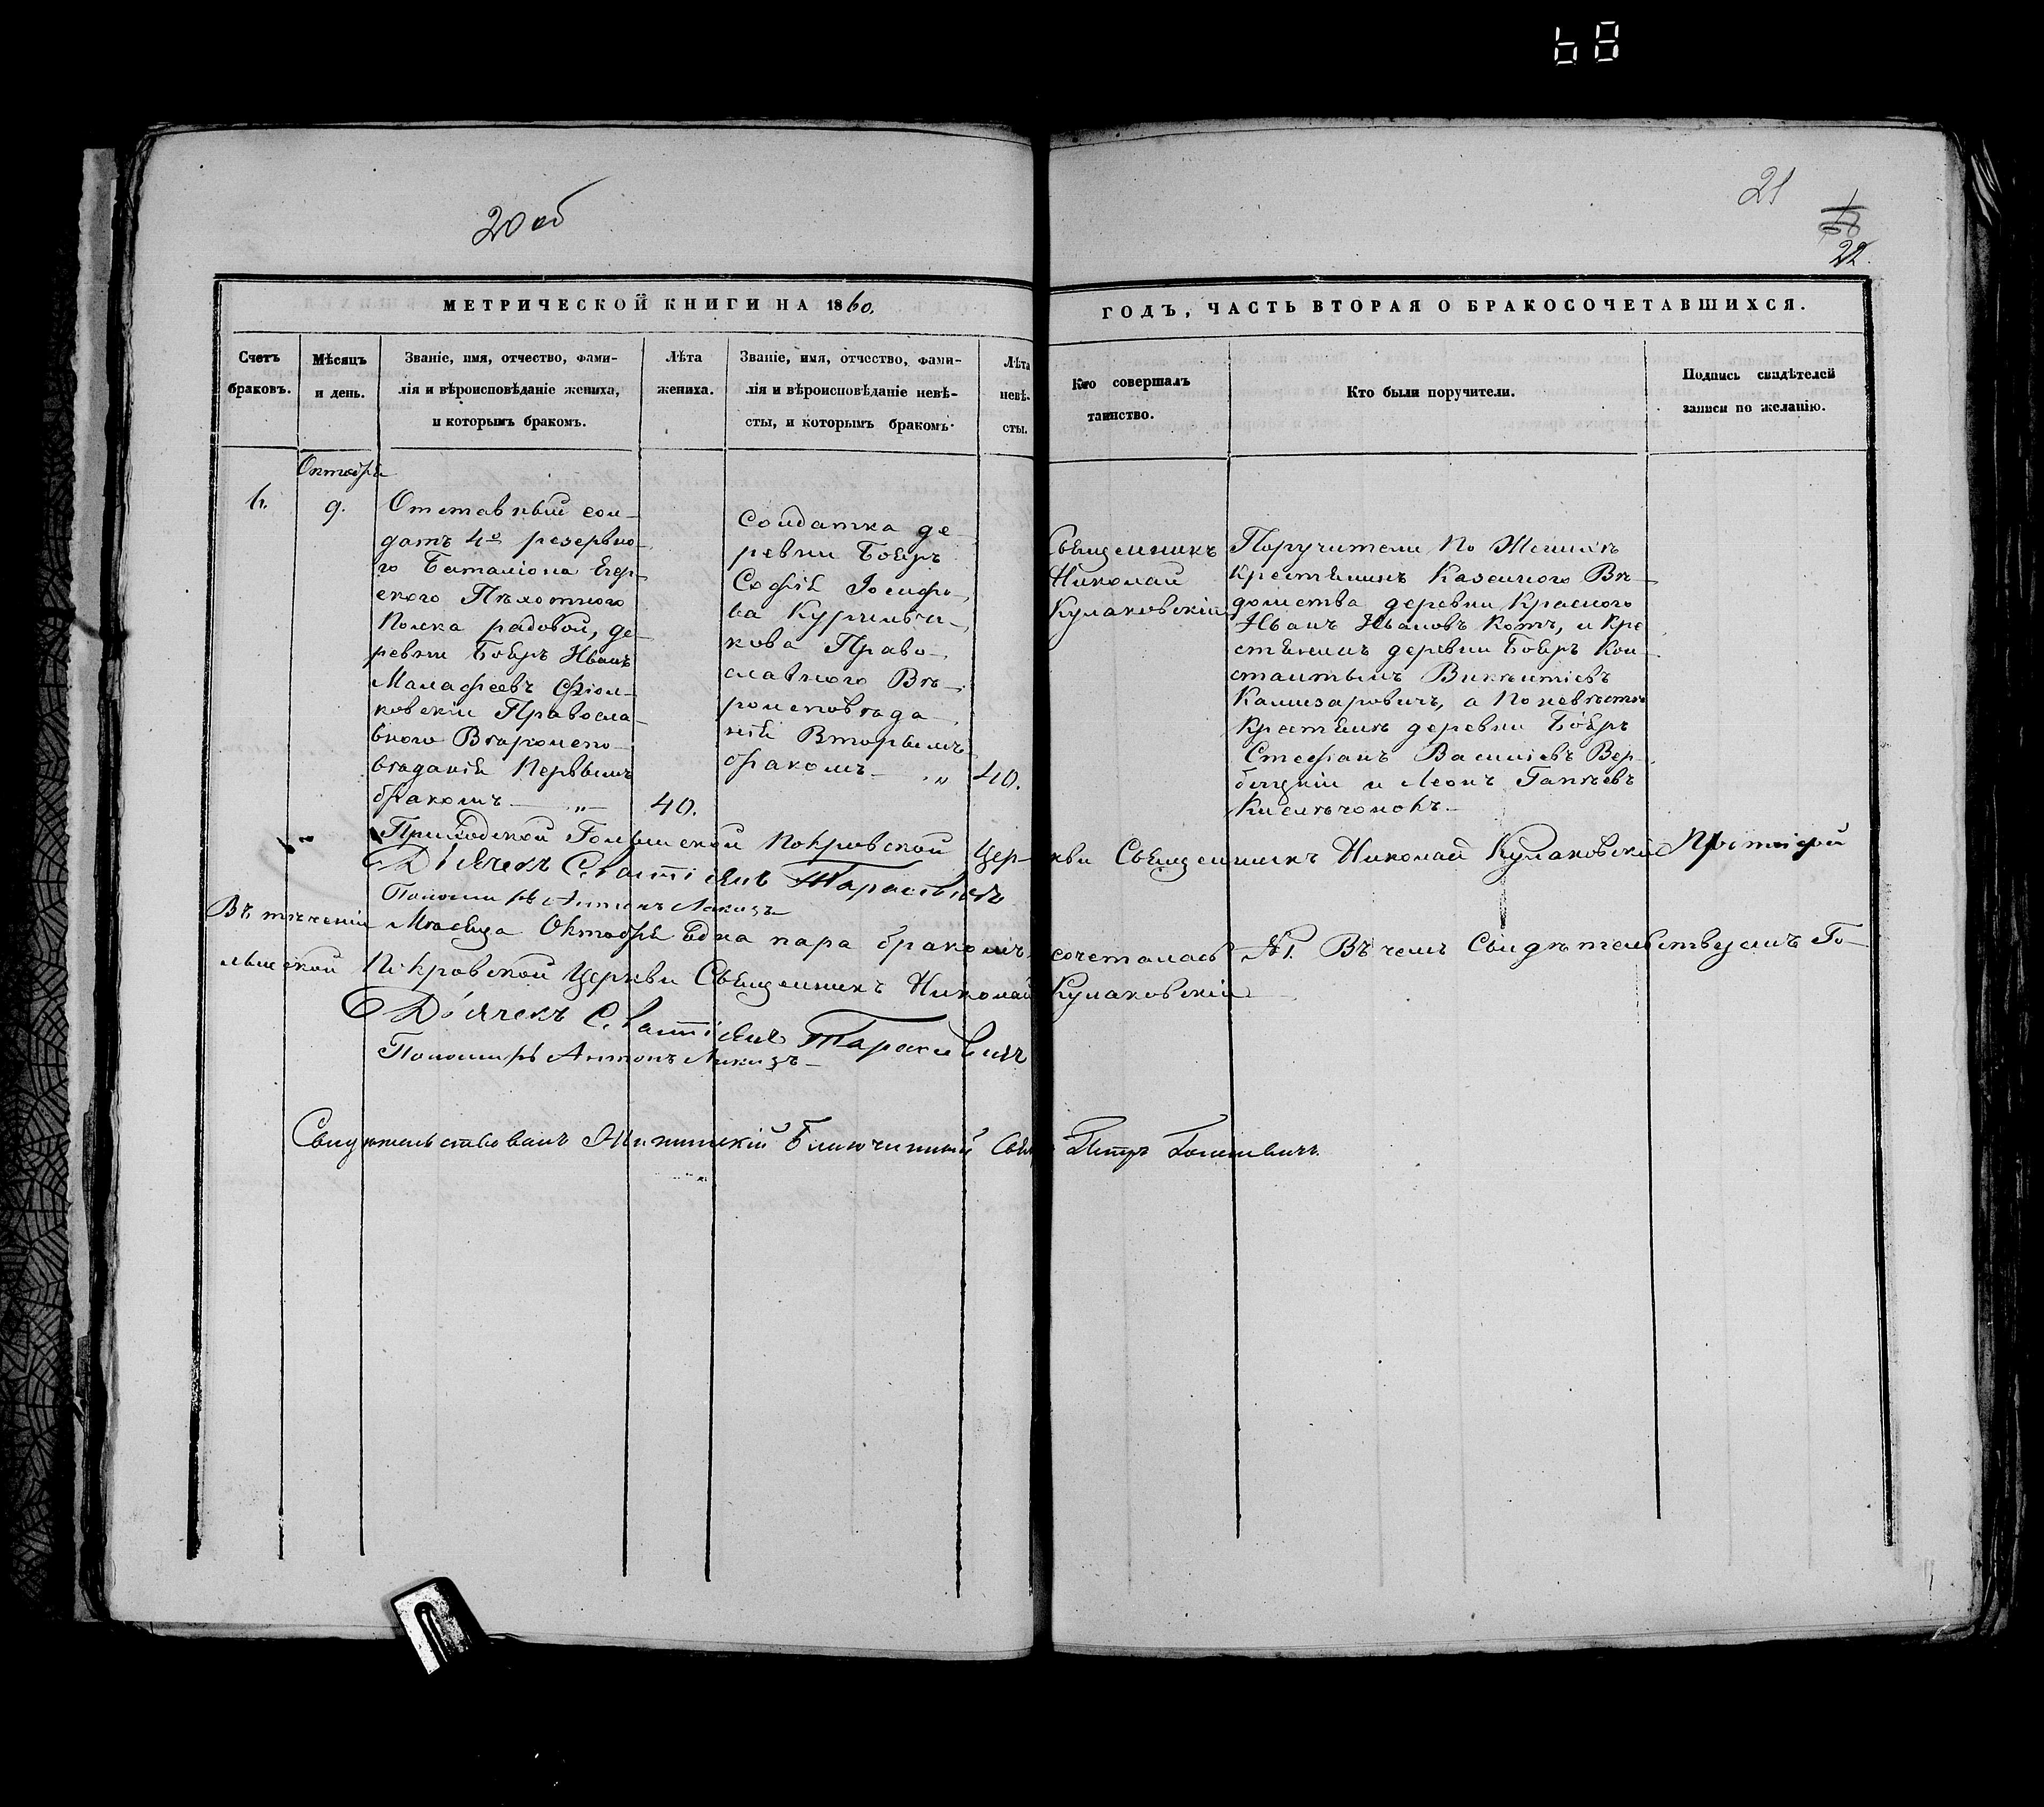 68
20 об
21
18
22.
МЕТРИЧЕСКОЙ КНИГИ НА 1860.
ГОДЪ, ЧАСТЬ ВТОРАЯ О БРАКОСОЧЕТАВШИХСЯ.
Счетъ
браковъ.
Мѣсяцъ
и день.
Званіе, имя, отчество, фами-
лія и вѣроисповѣданіе жениха,
и которымъ бракомъ.
Лѣта
жениха.
Званіе, имя, отчество, фами-
лія и вѣроисповѣданіе невѣ-
сты, и которымъ бракомъ.
Лѣта
невѣ-
сты.
Кто совершалъ
таинство.
Кто были поручители.
Подпись свидѣтелей
записи по желанію.
Октября
9.
Отставный сол-
датъ 4го резервно-
го Баталіона Егер-
скаго Пѣхотнаго
Полка радовой, де-
ревни Бояръ Иванъ
Малафеевъ
ковскій Правосла-
внаго Вѣроиспо-
вѣданія Первымъ
бракомъ — „ —
40.
Солдатка де-
ревни Бояръ
Софія Іосифо-
ва
кова Право-
славнаго Вѣ-
роисповѣда-
нія Вторымъ
бракомъ — „
40.
Священникъ
Николай
Кулаковскій
Поручители По Женихѣ
Крестьянинъ Казеннаго Вѣ-
домства деревни Красного
Иванъ Ивановъ Котъ, и Кре
стьянинъ деревни Бояръ Кон-
стантинъ Викентіевъ
Калишаровичъ, а По невѣстѣ
Крестьянъ деревни Бояръ
Стефанъ Василіевъ Вер-
бицкій и Леонъ Гапѣевъ
Киселѣчонокъ —
Приходской Гольшской Покровской Церкви Священникъ Николай Кулаковскій
Дьячекъ Тарасевичъ
Пономаръ Антонъ
Въ теченіи Мѣсяца Октября Една пара бракомъ сочеталась №1. Въ чемъ Свидѣтельствуемъ Го-
льшской Покровской Церкви Священникъ Николай Кулаковскій
Дьячекъ Тарасевичъ
Пономаръ Антонъ
Свидѣтельствовалъ Благочинный Свящ Петръ